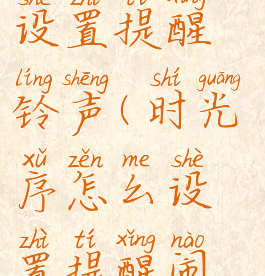 shè zhì tí xǐng
设置提醒
líng shēng shí guāng
铃声(时光
xǔ zěn me shè
序怎么设
zhì tí xǐng nào
置提醒闹